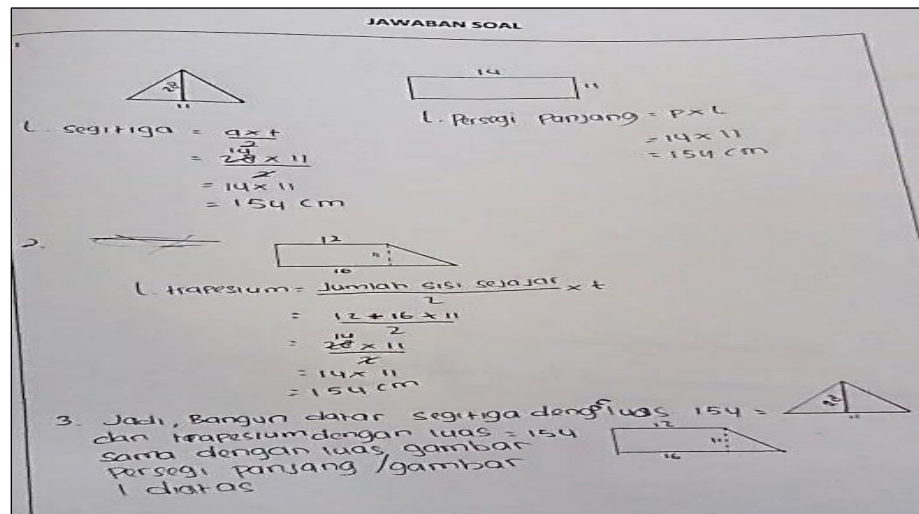 JAWABAN SOAL
28
11
14
11
L. segitiga = a x t
2
= 14
28 x 11
2
= 14 x 11
= 154 cm
L. Persegi Panjang = P x L
= 14 x 11
= 154 cm
2.
12
11
16
L. trapesium = Jumlah sisi sejajar x t
2
= 12 + 16 x 11
2
= 14
28 x 11
2
= 14 x 11
= 154 cm
3. Jadi, Bangun datar segitiga dengan luas 154 =
28
11
dan trapesium dengan luas = 154
12
11
16
sama dengan luas gambar
Persegi Panjang / gambar
1 diatas